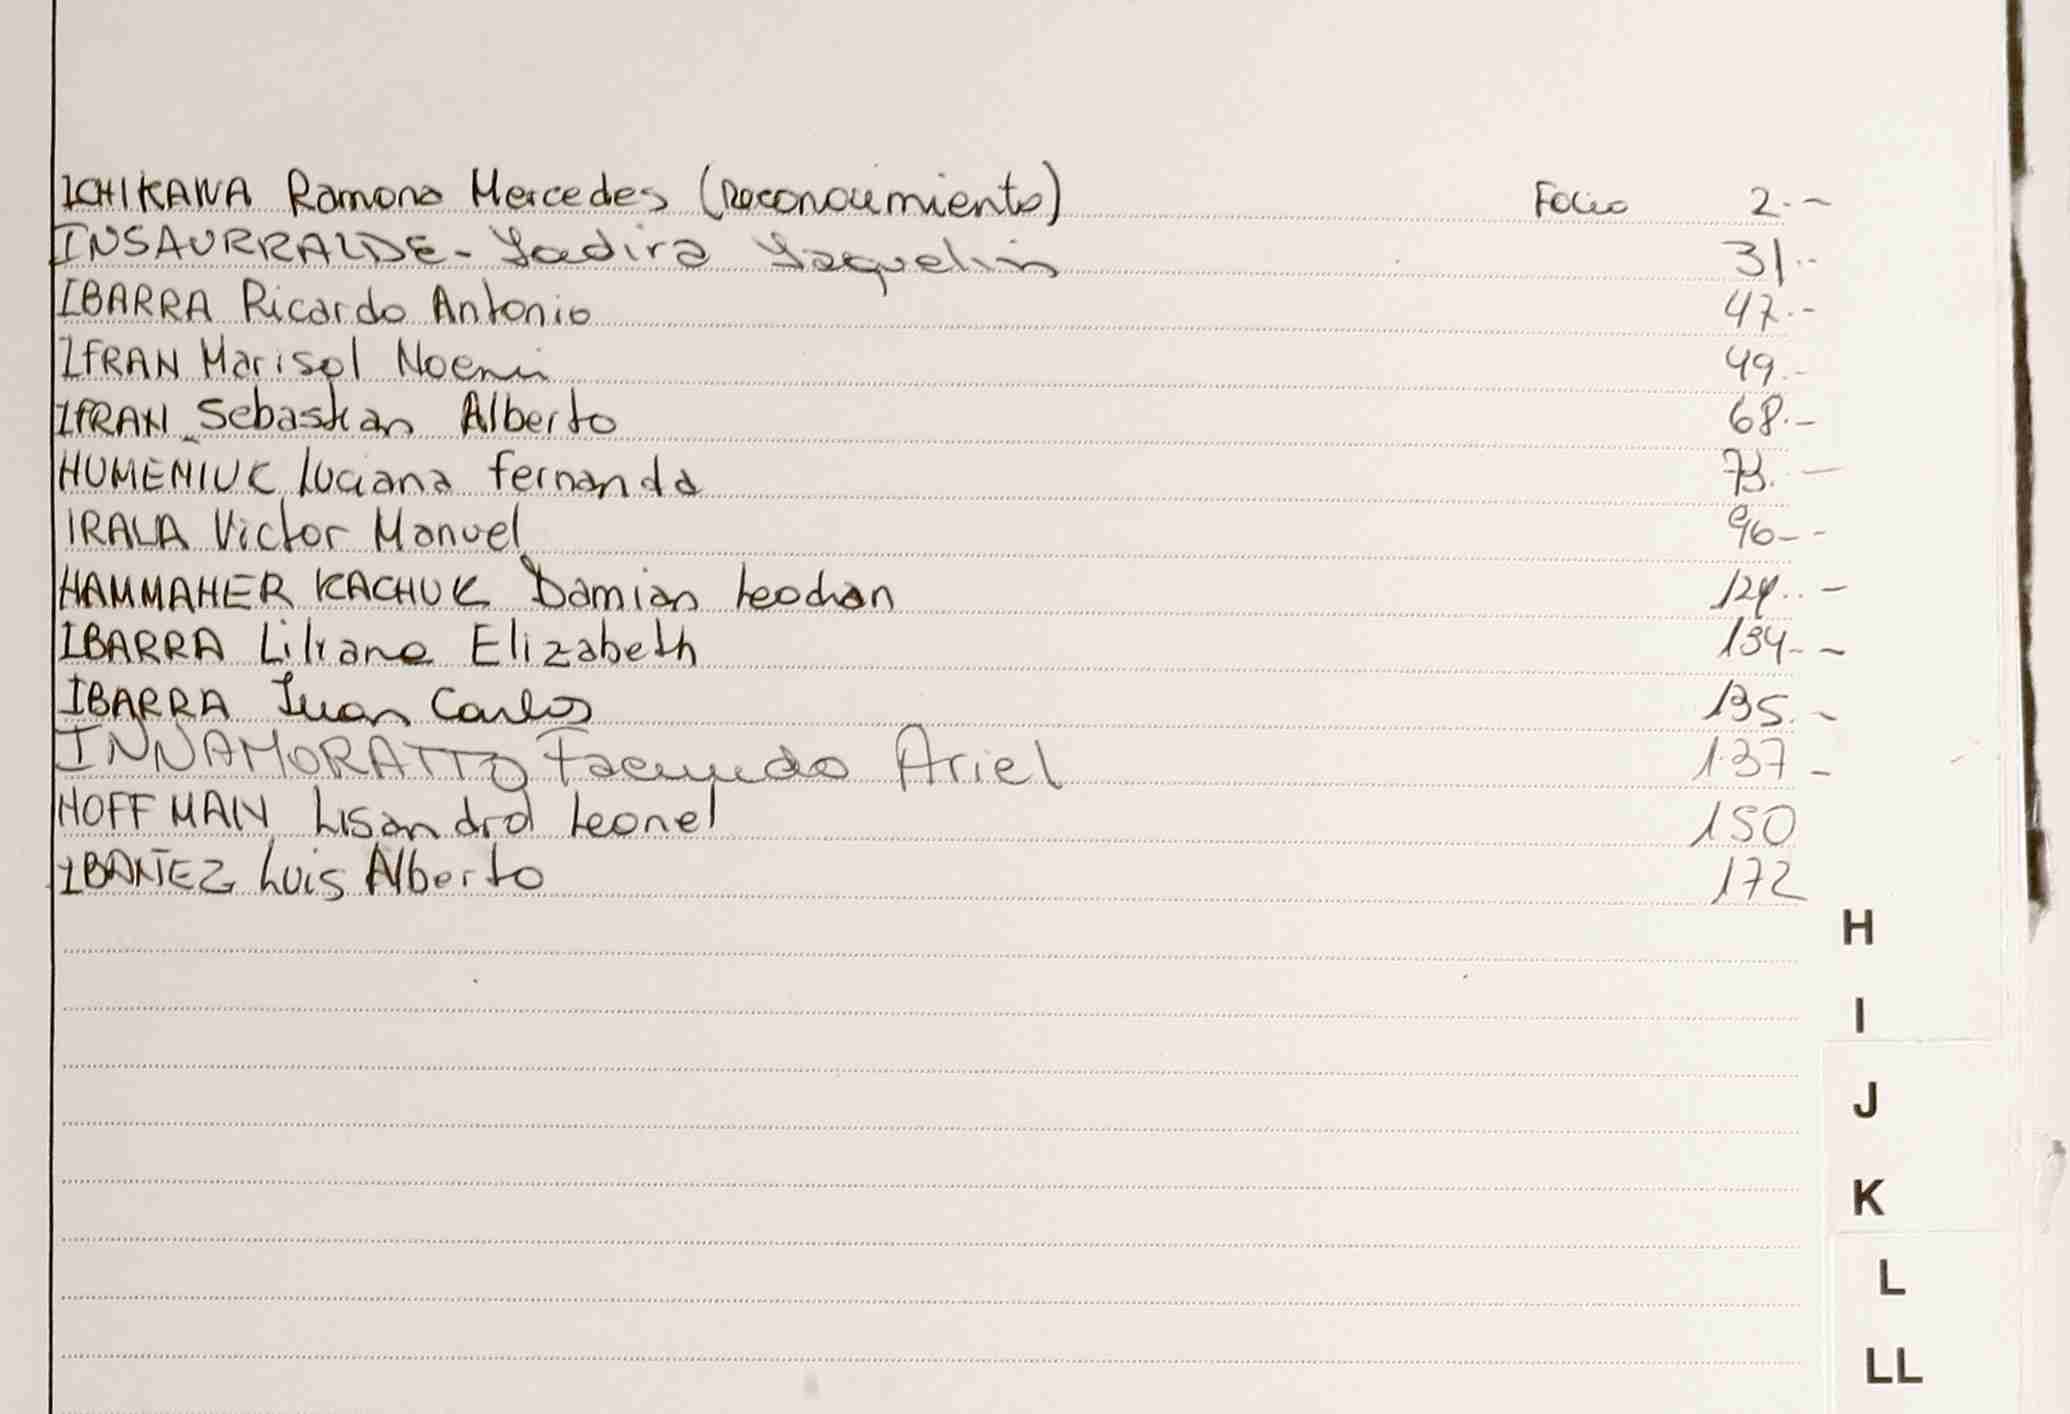 ICHIKAWA Ramona Mercedes (Reconocimiento) Folio 2.-
INSAURRALDE - Yadira Yaquelin 31.-
IBARRA Ricardo Antonio 47.-
IFRAN Marisol Noemi 49.-
IFRAN Sebastian Alberto 68.-
HUMENIUK Luciana Fernanda 73.-
IRALA Victor Manuel 96--
HAMMAHER KACHUK Damian 124..-
IBARRA Liliana Elizabeth 134--
IBARRA Juan Carlos 135.-
INNAMORATTO Facundo Ariel 137-
HOFFMAN Lisandro Leonel 150
IBAÑEZ Luis Alberto 172
H
I
J
K
L
LL